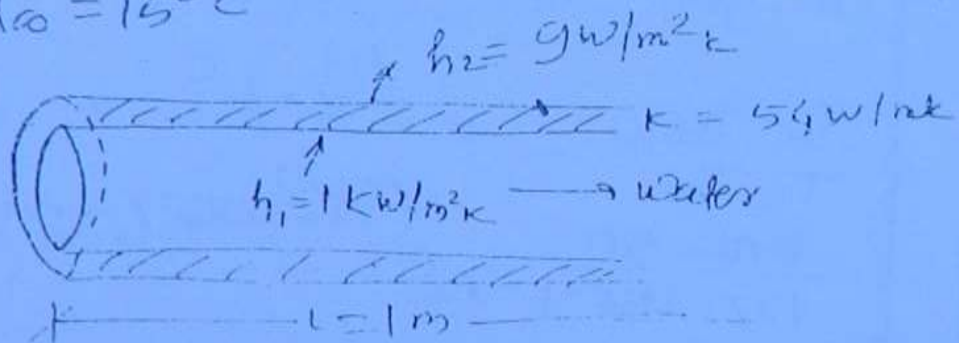 T∞ = 15°C
h₂ = 9W/m²K
K = 54W/mk
h₁ = 1KW/m²K → Water
L = 1m